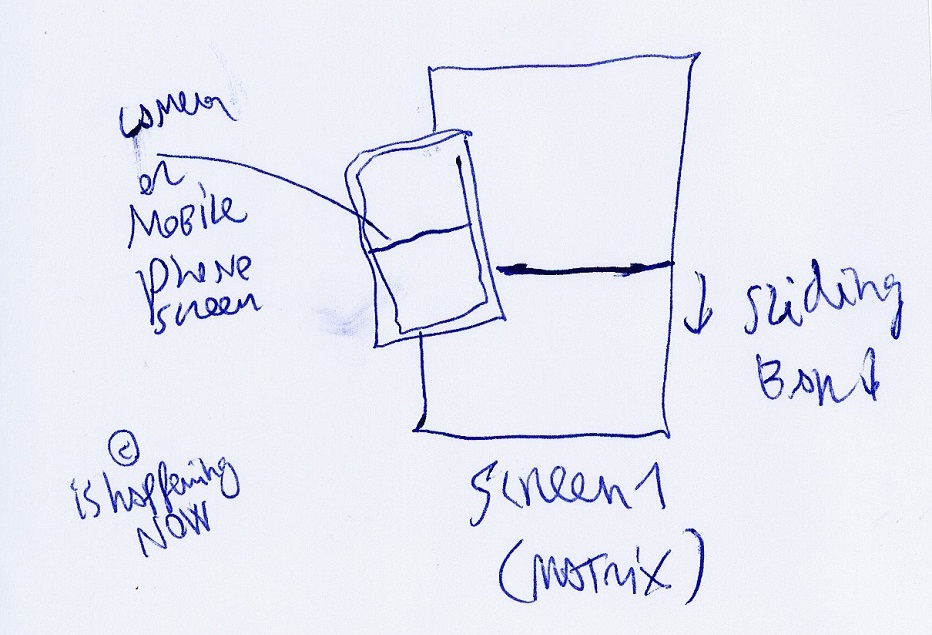 camera
or
MOBILE
phone
screen
↓ sliding
Bar ↓
② is happening
NOW
screen 1
(MATRIX)